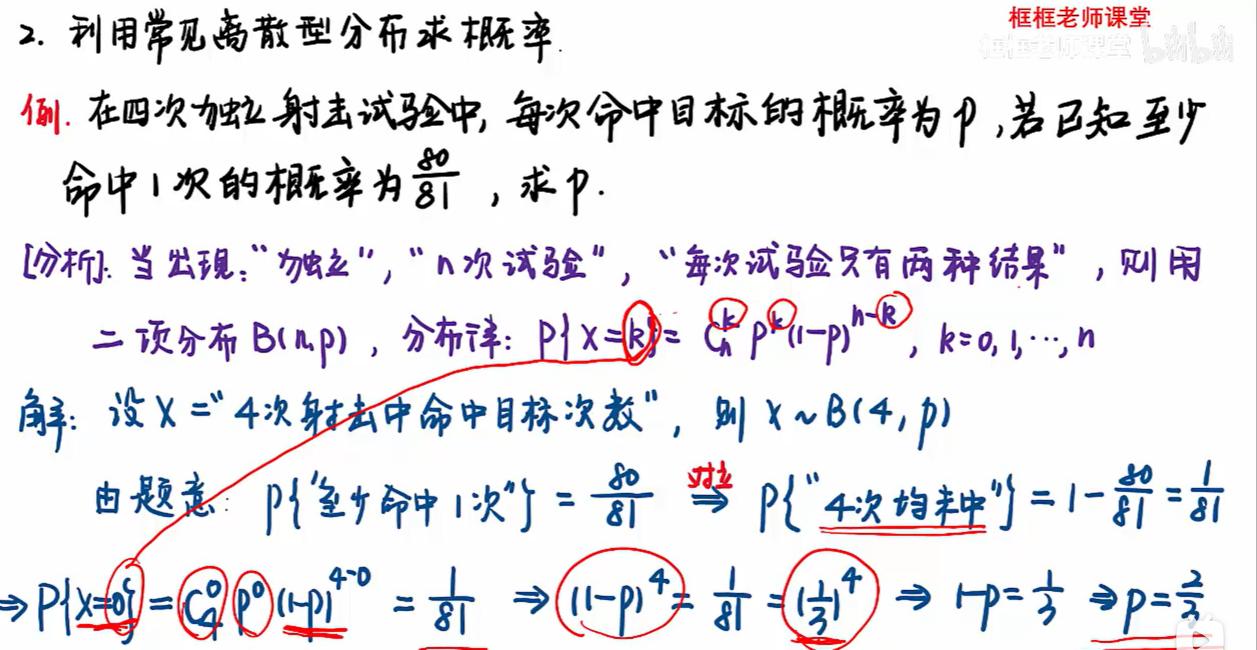 框框老师课堂
框框老师课堂 bilibili
2. 利用常见离散型分布求概率.
例. 在四次独立射击试验中, 每次命中目标的概率为 p , 若已知至少
命中1次的概率为 80/81 , 求 p.
[分析]: 当出现: “独立”, “n次试验”, “每次试验只有两种结果”, 则用
二项分布 B(n,p) , 分布律: P{X=k} = C_n^k p^k (1-p)^{n-k} , k=0,1,…,n
解: 设 X = “4次射击中命中目标次数”, 则 X ~ B(4, p)
由题意: P{“至少命中1次”} = 80/81 对立 ⇒ P{“4次均未中”} = 1 - 80/81 = 1/81
⇒ P{X=0} = C_4^0 p^0 (1-p)^{4-0} = 1/81 ⇒ (1-p)^4 = 1/81 = (1/3)^4 ⇒ 1-p = 1/3 ⇒ p = 2/3